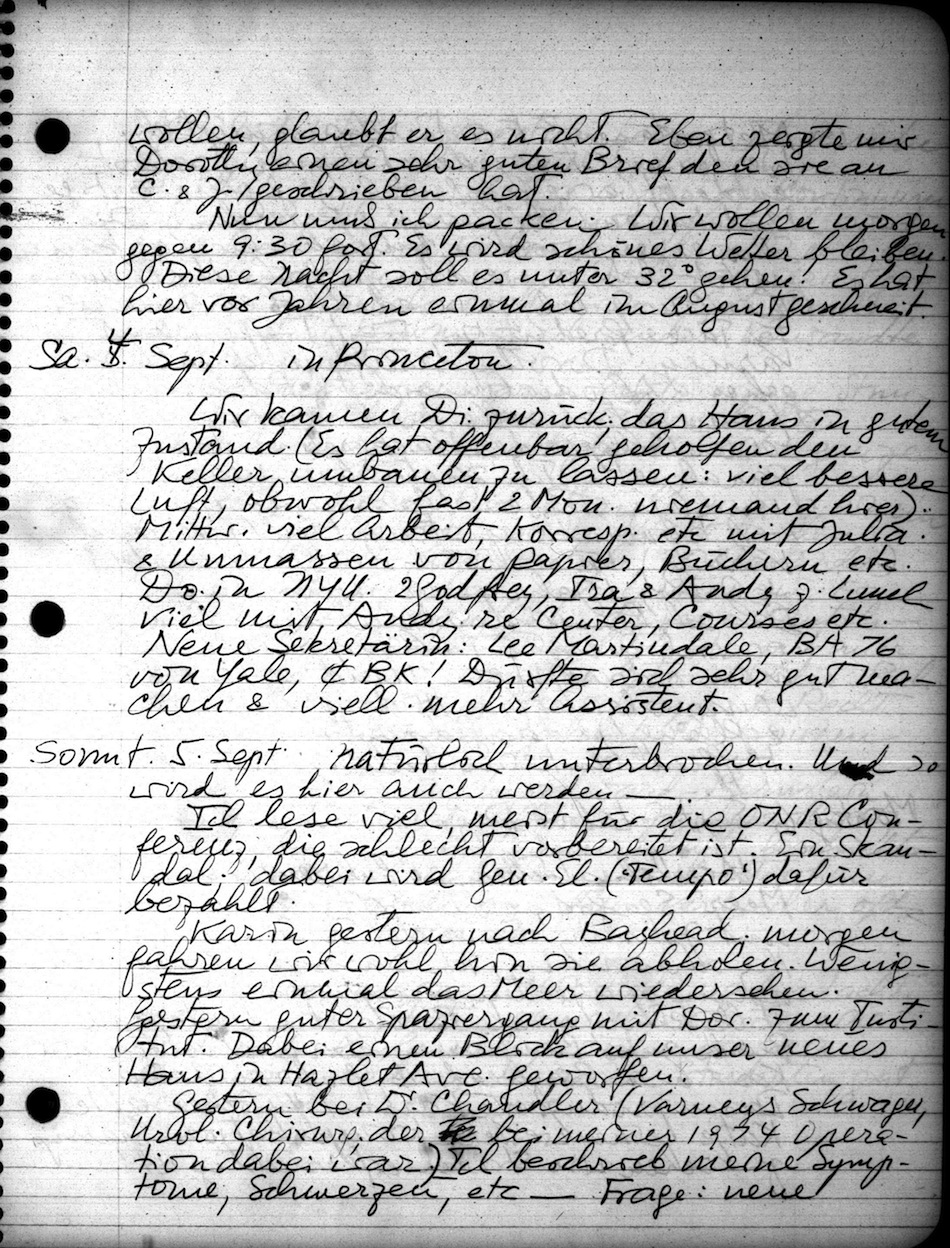 wollen, glaubt er es nicht. Eben zeigte mir
Dorothy einen sehr guten Brief den sie an
C. & J. geschrieben hat.
Nun muß ich packen. Wir wollen morgen
gegen 9:30 fort. Es wird schönes Wetter bleiben.
Diese Nacht soll es unter 32° gehen! Es hat
hier vor Jahren einmal im August geschneit.
Sa. 4. Sept. in Princeton.
Wir kamen Di. zurück, das Haus in gutem
Zustand. (Es hat offenbar geholfen den
Keller umbauen zu lassen: viel bessere
Luft, obwohl fast 2 Mon. niemand hier).
Mittw. viel Arbeit, Korresp. etc mit Julia.
& Unmassen von Papier, Büchern etc.
Do. in NYU. 2 Godfrey, Ira & Andy z. Lunch
viel mit Andy re Center, Courses etc.
Neue Sekretärin: Lee Martindale, BA 76
von Yale, ΦBK! Dürfte sich sehr gut ma-
chen & viell. mehr Assistent.
Sonnt. 5. Sept. Natürlich unterbrochen. Und so
wird es hier auch werden —.
Ich lese viel, meist für die ONR Con-
ferenz, die schlecht vorbereitet ist. Ein Skan-
dal; dabei wird Gen. El. ('Tempo') dafür
bezahlt.
Karin gestern nach Bayhead. morgen
fahren wir wohl hin sie abholen. Wenig-
stens einmal das Meer wiedersehen.
Gestern guter Spaziergang mit Dor. zum Insti-
tut. Dabei einen Blick auf unser neues
Haus in Hazlet Ave. geworfen.
Gestern bei Dr. Chandler (Varneys Schwager,
Urol. Chirurg. der bei meiner 1974 Opera-
tion dabei war.) Ich beschrieb meine Symp-
tome, Schmerzen, etc — Frage: neue